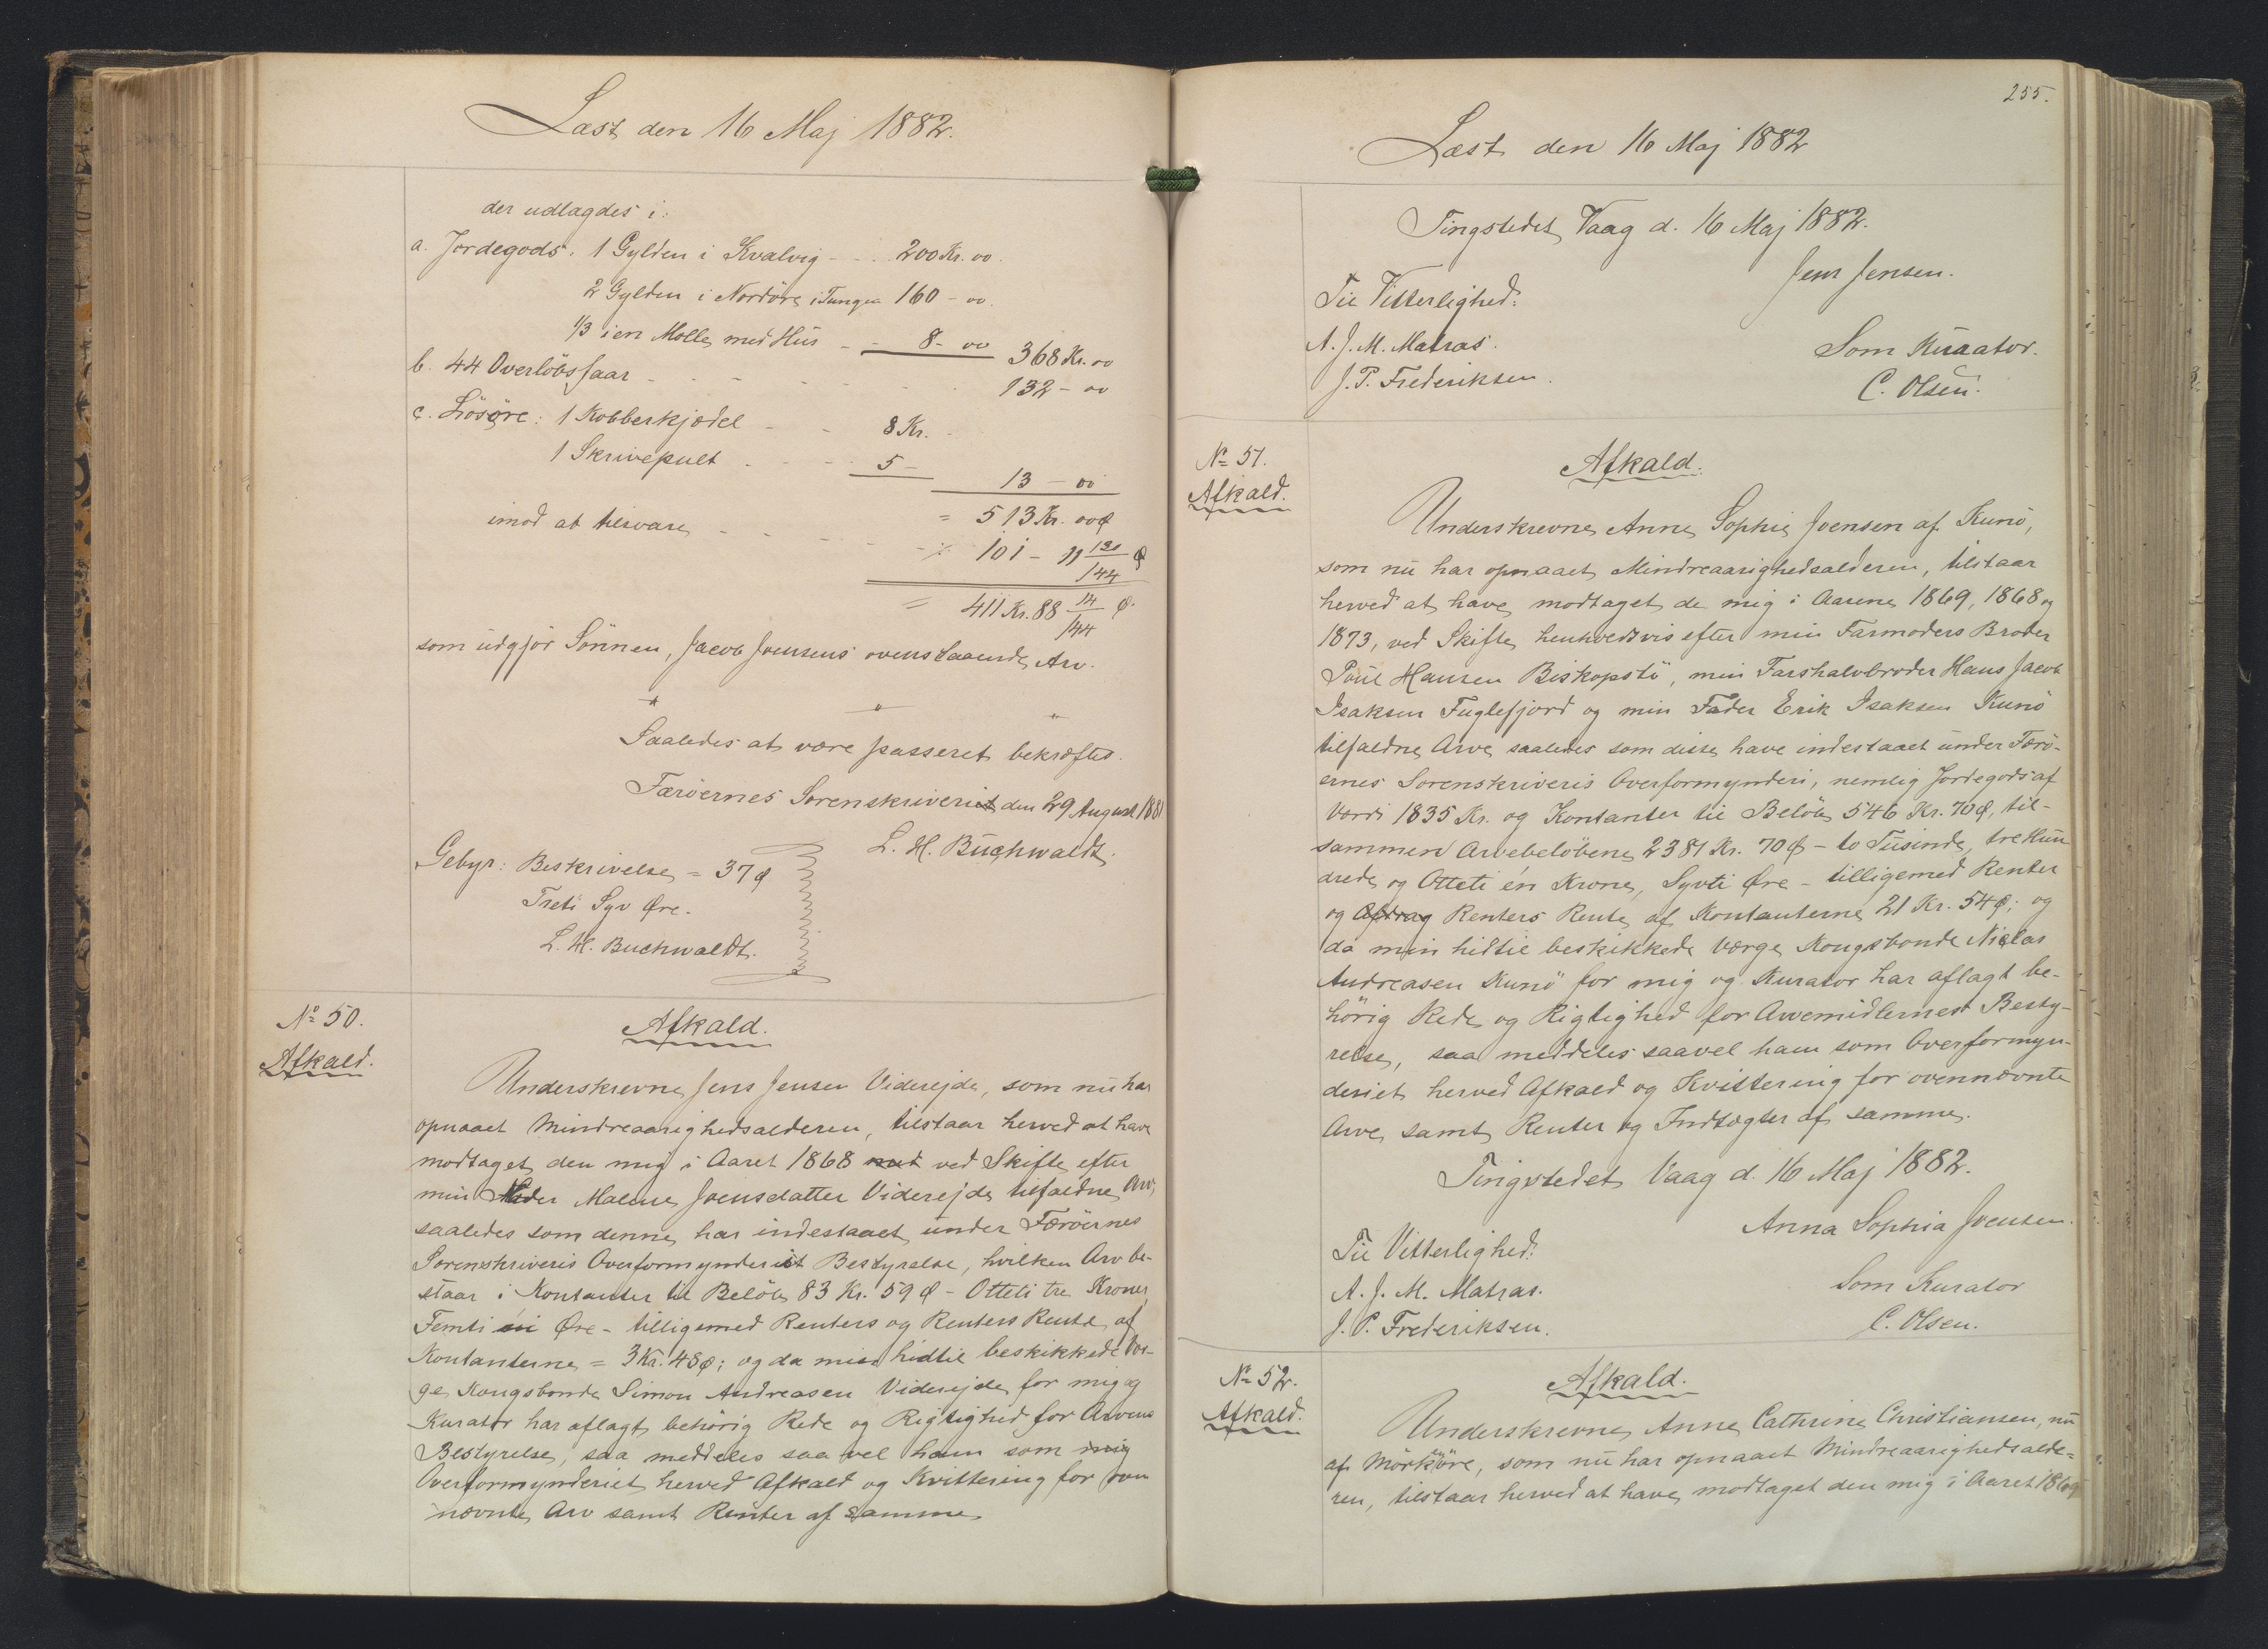 Læst den 16 Maj 1882.
der udlagdes i:
a. Jordegods: 1 Gylden i Kvalvig - - 200 Kr. 00.
2 Gylden i Nordöre i Tungen 160 - 00.
1/3 i en Mölle med Hus - - 8 - 00 368 Kr. 00
b. 44 Overlöbsfaar - - - - - 132 - 00
c. Lösöre: 1 Kobberkjedel - - 8 Kr. -
1 Skrivepult - - - 5 -
13 - 00
= 513 Kr. 00 Ø
imod at tilsvare - - - - - ÷ 101 - 11 130/144 Ø
= 411 Kr. 88 14/144 Ø.
som udgjör Sönnen, Jacob Joensens ovenstaaende Arv.
" " "
Saaledes at være passeret bekræftes.
Færöernes Sorenskriveri den 29 August 1881
L. H. Buchwaldt.
Gebyr: Beskrivelse = 37 Ø
Treti Syv Øre.
L. H. Buchwaldt.
No 50.
Afkald.
Afkald.
Underskrevne Jens Jensen Viderejde, som nu har
opnaaet Mindreaarighedsalderen, tilstaar herved at have
modtaget den mig i Aaret 1868 ved Skifte efter
min Moder Malene Joensdatter Viderejde tilfaldne Arv,
saaledes som denne har indestaaet under Færöernes
Sorenskriveris Overformynderis Bestyrelse, hvilken Arv be-
staar i Kontanter til Belöb 83 Kr. 59 Ø - Otteti tre Kroner,
Femti ni Øre - tilligemed Renters og Renters Rente af
Kontanterne = 3 Kr. 48 Ø; og da min hidtil beskikkede Vær-
ge Kongsbonde Simon Andreasen Viderejde for mig og
Kurator har aflagt behörig Rede og Rigtighed for Arvens
Bestyrelse, saa meddeles saa vel ham som mig
Overformynderiet herved Afkald og Kvittering for oven
nævnte Arv samt Renter af samme.
255.
Læst den 16 Maj 1882
Tingstedet Vaag d. 16 Maj 1882.
Jens Jensen.
Til Vitterlighed:
A. J. M. Matras.
J. P. Frederiksen.
Som Kurator.
C. Olsen.
No 51.
Afkald.
Afkald.
Underskrevne Anne Sophie Joensen af Kunö,
som nu har opnaaet Mindreaarighedsalderen, tilstaar
herved at have modtaget de mig i Aarene 1869, 1868 og
1873, ved Skifte henholdsvis efter min Farmoders Broder
Poul Hansen Biskopstö, min Farshalvbroder Hans Jacob
Isaksen Fuglefjord og min Fader Erik Isaksen Kunö
tilfaldne Arve saaledes som disse have indestaaet under Færö-
ernes Sorenskriveris Overformynderi, nemlig Jordegods af
Værdi 1835 Kr. og Kontanter til Belöb 546 Kr. 70 Ø, til-
sammen Arvebelöbene 2381 Kr. 70 Ø - to Tusinde, tre Hun
drede og Otteti én Krone, Syvti Øre - tilligemed Renter
og Afdrag Renters Rente af Kontanterne 21 Kr. 54 Ø; og
da min hidtil beskikkede Værge Kongsbonde Niclas
Andreasen Kunö for mig og Kurator har aflagt be-
hörig Rede og Rigtighed for Arvemidlernes Besty-
relse, saa meddeles saavel ham som Overformyn-
deriet herved Afkald og Kvittering for ovennævnte
Arve samt Renter og Indtægter af samme.
Tingstedet Vaag d. 16 Maj 1882.
Anna Sophia Joensen.
Til Vitterlighed:
A. J. M. Matras.
J. P. Frederiksen.
Som Kurator
C. Olsen.
No 52.
Afkald.
Afkald.
Underskrevne Anne Cathrine Christiansen, nu
af Mörköre, som nu har opnaaet Mindreaarighedsalde-
ren, tilstaar herved at have modtaget den mig i Aaret 1869